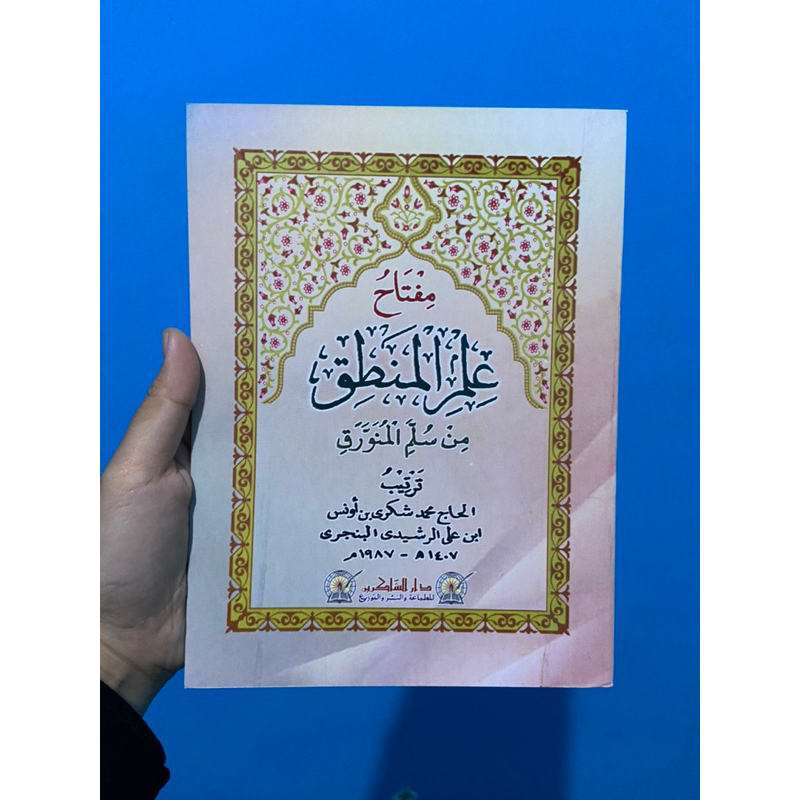 مِفْتَاحُ
عِلْمِ الْمَنْطِقِ
مِنْ سُلَّمِ الْمُنَوْرَقِ
تَرْتِيْبُ
الحاج محمد شكرى بن أونس
ابن على الرشيدى البنجرى
١٤٠٧ه - ١٩٨٧م
دار الشاكرين
للطباعة والنشر والتوزيع